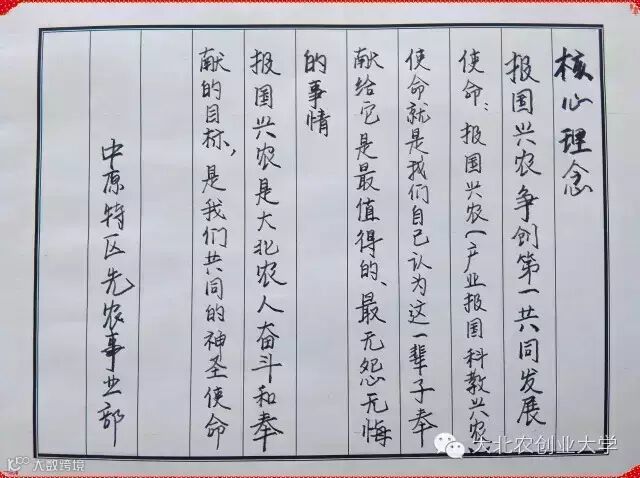 核心理念
报国兴农争创第一共同发展
使命：报国兴农（产业报国科教兴农）
使命就是我们自己认为这一辈子奉
献给它是最值得的、最无怨无悔
的事情
报国兴农是大北农人奋斗和奉
献的目标，是我们共同的神圣使命
中原特区先农事业部
大北农创业大学
大数跨境